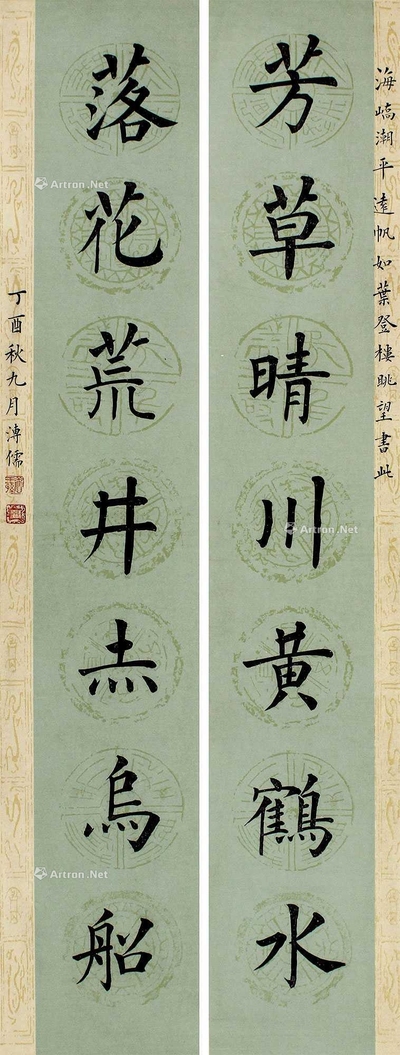 海嶠潮平遠帆如葉登樓眺望書此
芳草晴川黃鶴水
落花荒井赤烏船
丁酉秋九月溥儒
Artron.Net
Artron.Net
Artron.Net